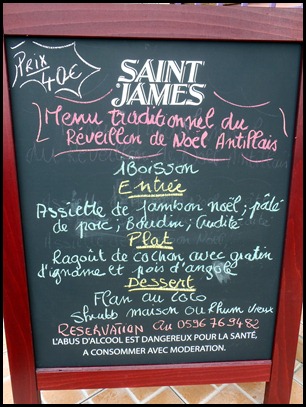 PRIX
40€
SAINT
JAMES
Menu traditionnel du
Réveillon de Noël Antillais
1 Boisson
Entrée
Assiette de jambon noël; pâté
de porc; Boudin; Crudité
Plat
Ragoût de cochon avec gratin
d'igname et pois d'angole
Dessert
Flan au coco
Shrubb maison ou Rhum vieux
RESERVATION au 0596 76 94 82
L'ABUS D'ALCOOL EST DANGEREUX POUR LA SANTÉ,
A CONSOMMER AVEC MODERATION.